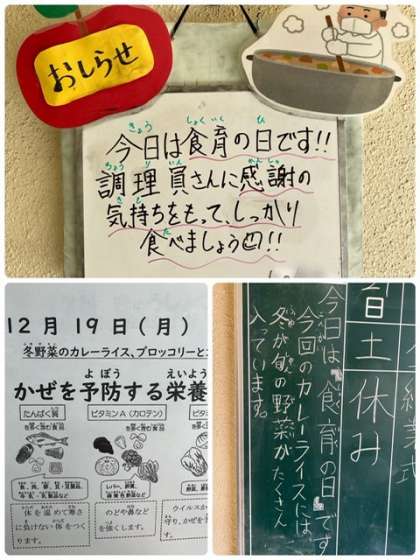 おしらせ
今日は食育の日です!!
調理員さんに感謝の
気持ちをもって、しっかり
食べましょう!!
12月19日(月)
冬野菜のカレーライス、ブロッコリーと
かぜを予防する栄養
たんぱく質
ビタミンA(カロテン)
ビタミン
体を温めて寒さ
に負けない体をつく
ります。
のどや鼻など
を強くします。
ウイルスか
守り、かぜを
今日は『食育の日』です
今回のカレーライスには
冬が旬の野菜がたくさん
入っています。
土
休み